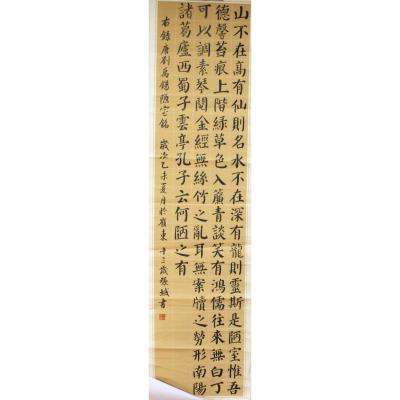 山不在高有仙則名水不在深有龍則靈斯是陋室惟吾
德馨苔痕上階綠草色入簾青談笑有鴻儒往來無白丁
可以調素琴閱金經無絲竹之亂耳無案牘之勞形南陽
諸葛廬西蜀子雲亭孔子云何陋之有
右錄唐劉禹錫陋室銘 歲次乙未夏月於東 十三歲張城書